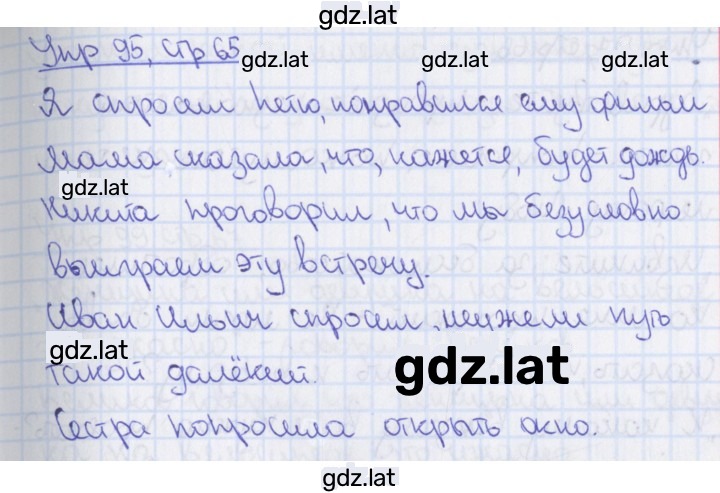 gdz.lat
Упр 95, стр 65
gdz.lat gdz.lat gdz.lat
Я спросил Петю, понравился ему фильм
Мама сказала, что, кажется, будет дождь.
gdz.lat
Никита проговорил, что мы безусловно
выиграем эту встречу.
Иван Ильич спросил, неужели путь
gdz.lat
такой далёкий. gdz.lat
Сестра попросила открыть окно.
gdz.lat